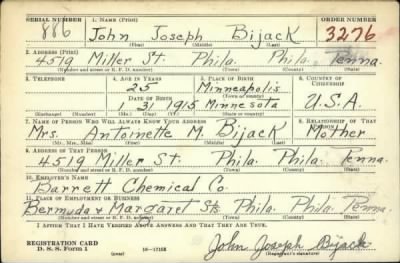 SERIAL NUMBER 1. NAME (Print) ORDER NUMBER
886 John Joseph Bijack 3276
(First) (Middle) (Last)
2. ADDRESS (Print)
4519 Miller St. Phila. Phila. Penna.
(Number and street or R. F. D. number) (Town) (County) (State)
3. TELEPHONE 4. AGE IN YEARS 5. PLACE OF BIRTH 6. COUNTRY OF CITIZENSHIP
25 Minneapolis
DATE OF BIRTH (Town or county)
1 31 1915 Minnesota U.S.A.
(Exchange) (Number) (Mo.) (Day) (Yr.) (State or country)
7. NAME OF PERSON WHO WILL ALWAYS KNOW YOUR ADDRESS 8. RELATIONSHIP OF THAT PERSON
Mrs. Antoinette M. Bijack Mother
(Mr., Mrs., Miss) (First) (Middle) (Last)
9. ADDRESS OF THAT PERSON
4519 Miller St. Phila. Phila. Penna.
(Number and street or R. F. D. number) (Town) (County) (State)
10. EMPLOYER'S NAME
Barrett Chemical Co.
11. PLACE OF EMPLOYMENT OR BUSINESS
Bermuda & Margaret Sts. Phila. Phila. Penna.
(Number and street or R. F. D. number) (Town) (County) (State)
I AFFIRM THAT I HAVE VERIFIED ABOVE ANSWERS AND THAT THEY ARE TRUE.
REGISTRATION CARD
D. S. S. Form 1 (over) John Joseph Bijack
(Registrant's signature)